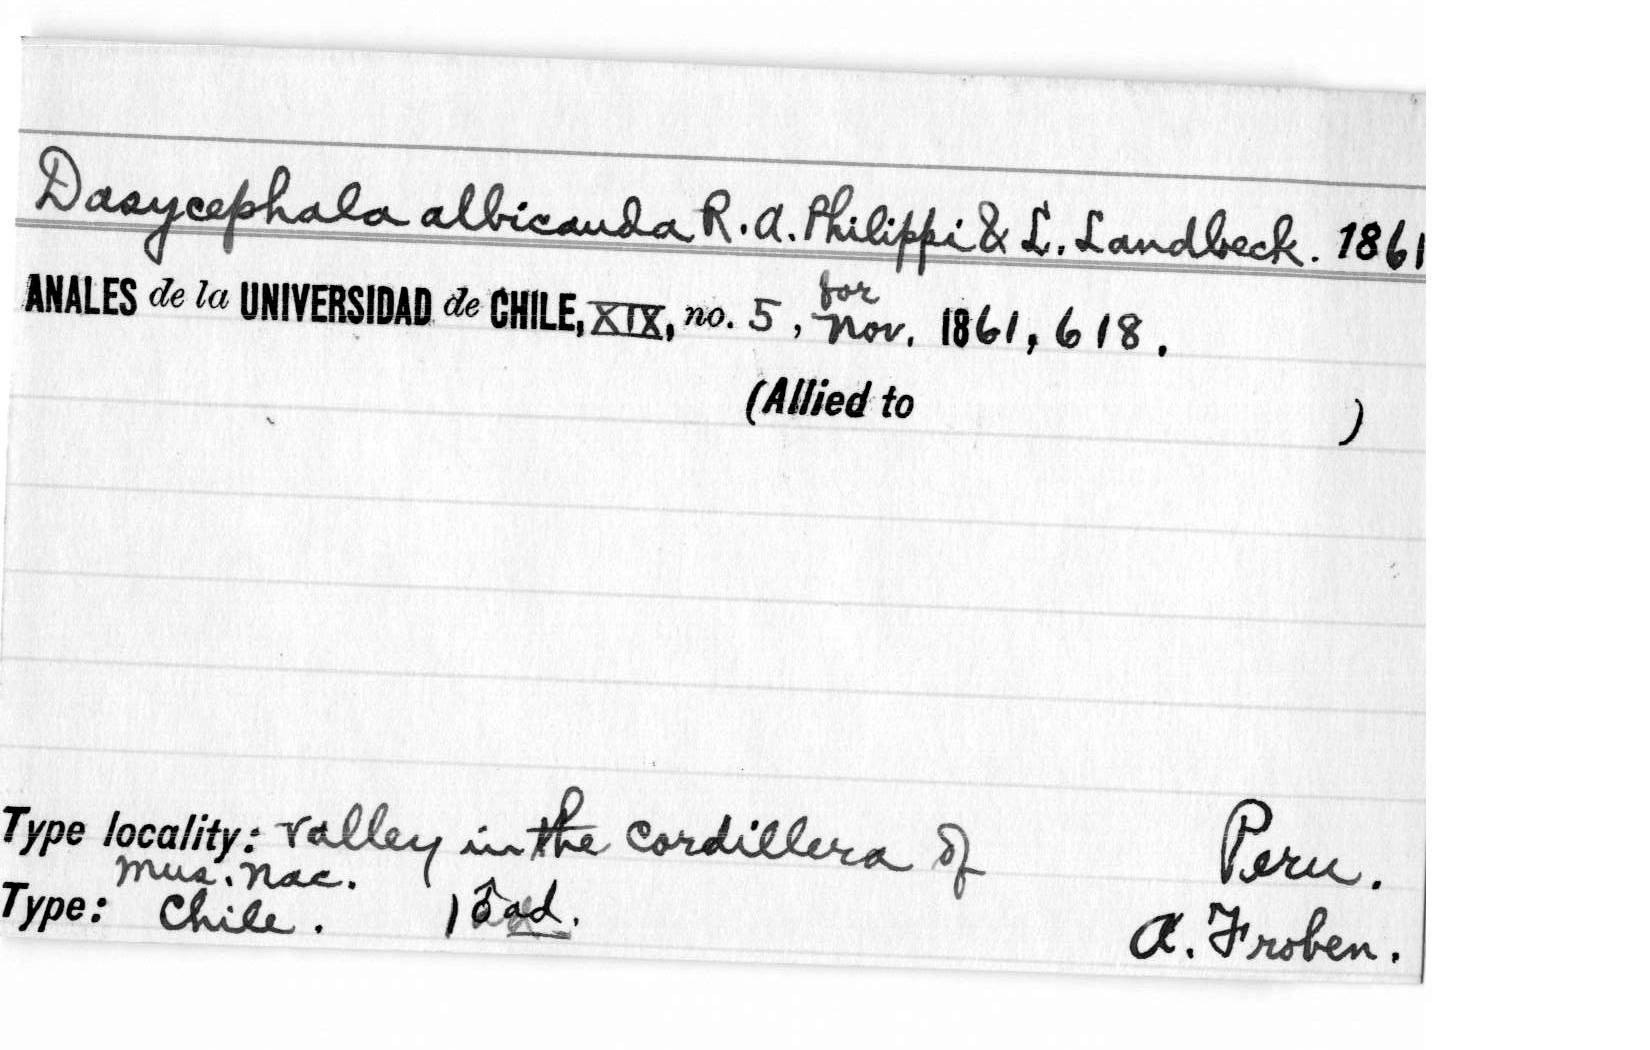 Dasycephala albicauda R. A. Philippi & L. Landbeck. 1861
ANALES de la UNIVERSIDAD de CHILE, XIX, no. 5, for Nov. 1861, 618.
(Allied to )
Type locality: Valley in the cordillera of Peru.
Type: Mus. Nac. Chile. 1 ♂ ad. A. Froben.